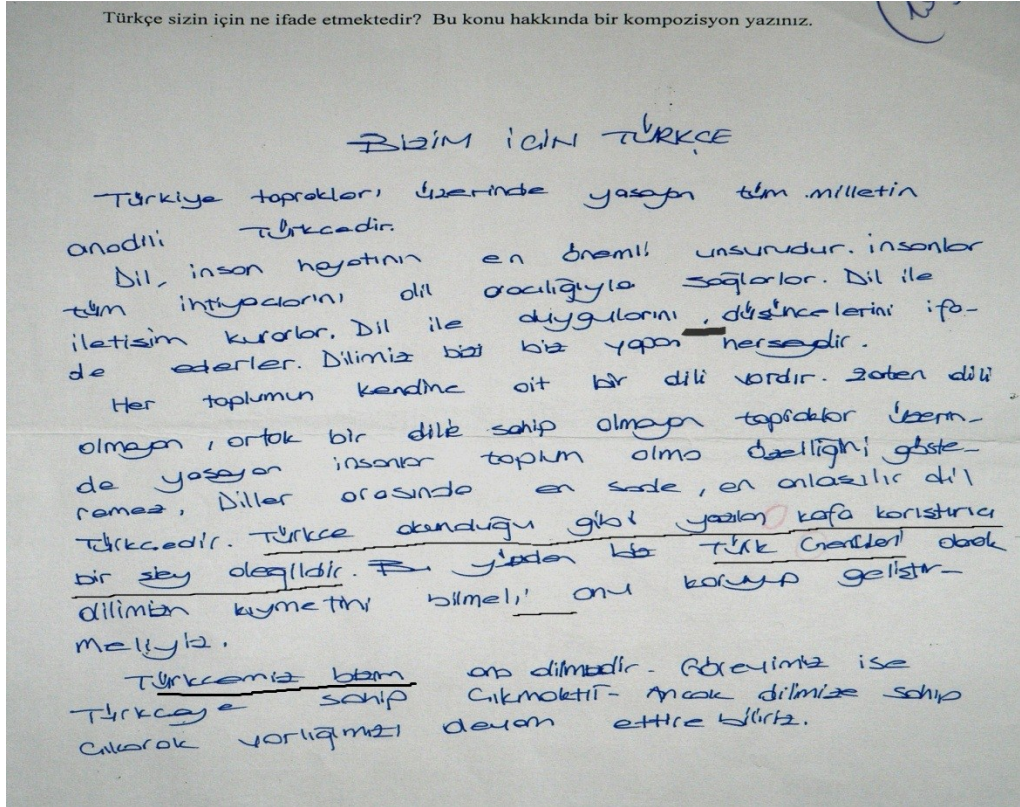 Türkçe sizin için ne ifade etmektedir? Bu konu hakkında bir kompozisyon yazınız.
BİZİM İÇİN TÜRKÇE
Türkiye toprakları üzerinde yaşayan tüm milletin
anadili Türkcedir.
Dil, insan hayatının en önemli unsurudur. İnsanlar
tüm ihtiyaclarını dil aracılığıyla sağlarlar. Dil ile
iletişim kurarlar. Dil ile duygularını, düşüncelerini ifa-
de ederler. Dilimiz bizi biz yapan herşeydir.
Her toplumun kendine ait bir dili vardır. Zaten dili
olmayan, ortak bir dile sahip olmayan topraklar üzerin-
de yaşayan insanlar toplum olma özelliğini göste-
remez. Diller arasında en sade, en anlaşılır dil
Türkcedir. Türkce okunduğu gibi yazılan kafa karıştırıcı
bir şey değildir. Bu yüzden biz Türk Gencleri olarak
dilimizin kıymetini bilmeli, onu koruyup geliştir-
meliyiz.
Türkcemiz bizim ana dilimizdir. Görevimiz ise
Türkceye sahip cıkmaktır. Ancak dilimize sahip
cıkarak varlığımızı devam ettire biliriz.